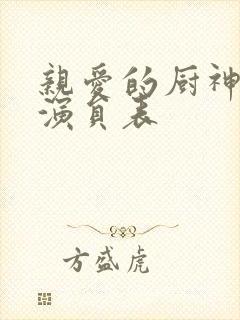 親愛的厨神
演員表
方盛虎